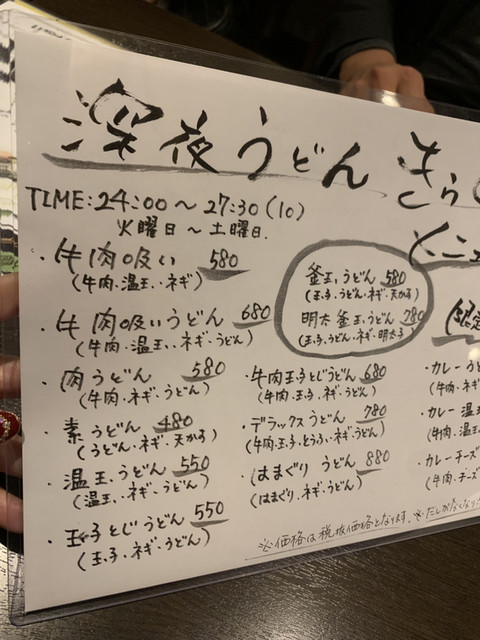 深夜うどん きら
TIME: 24:00〜27:30(LO)
火曜日〜土曜日.
・牛肉吸い 580
(牛肉・温玉・ネギ)
・牛肉吸いうどん 680
(牛肉・温玉・ネギ・うどん)
・肉うどん 580
(牛肉・ネギ・うどん)
・素うどん 480
(うどん・ネギ・天かす)
・温玉うどん 550
(温玉・ネギ・うどん)
・玉子とじうどん 550
(玉子・ネギ・うどん)
メニュ
釜玉うどん 580
(玉子・うどん・ネギ・天かす)
明太釜玉うどん 780
(玉子・うどん・ネギ・明太子)
・牛肉玉子とじうどん 680
(牛肉・玉子・ネギ・うどん)
・デラックスうどん 780
(牛肉・玉子・とうふ・ネギ・うどん)
・はまぐりうどん 880
(はまぐり・ネギ・うどん)
限定
・カレーうど
(牛肉・ネギ
・カレー温
(牛肉・温
・カレーチーズ
(牛肉・チーズ
※価格は税抜価格となります. ※だしがなくなり